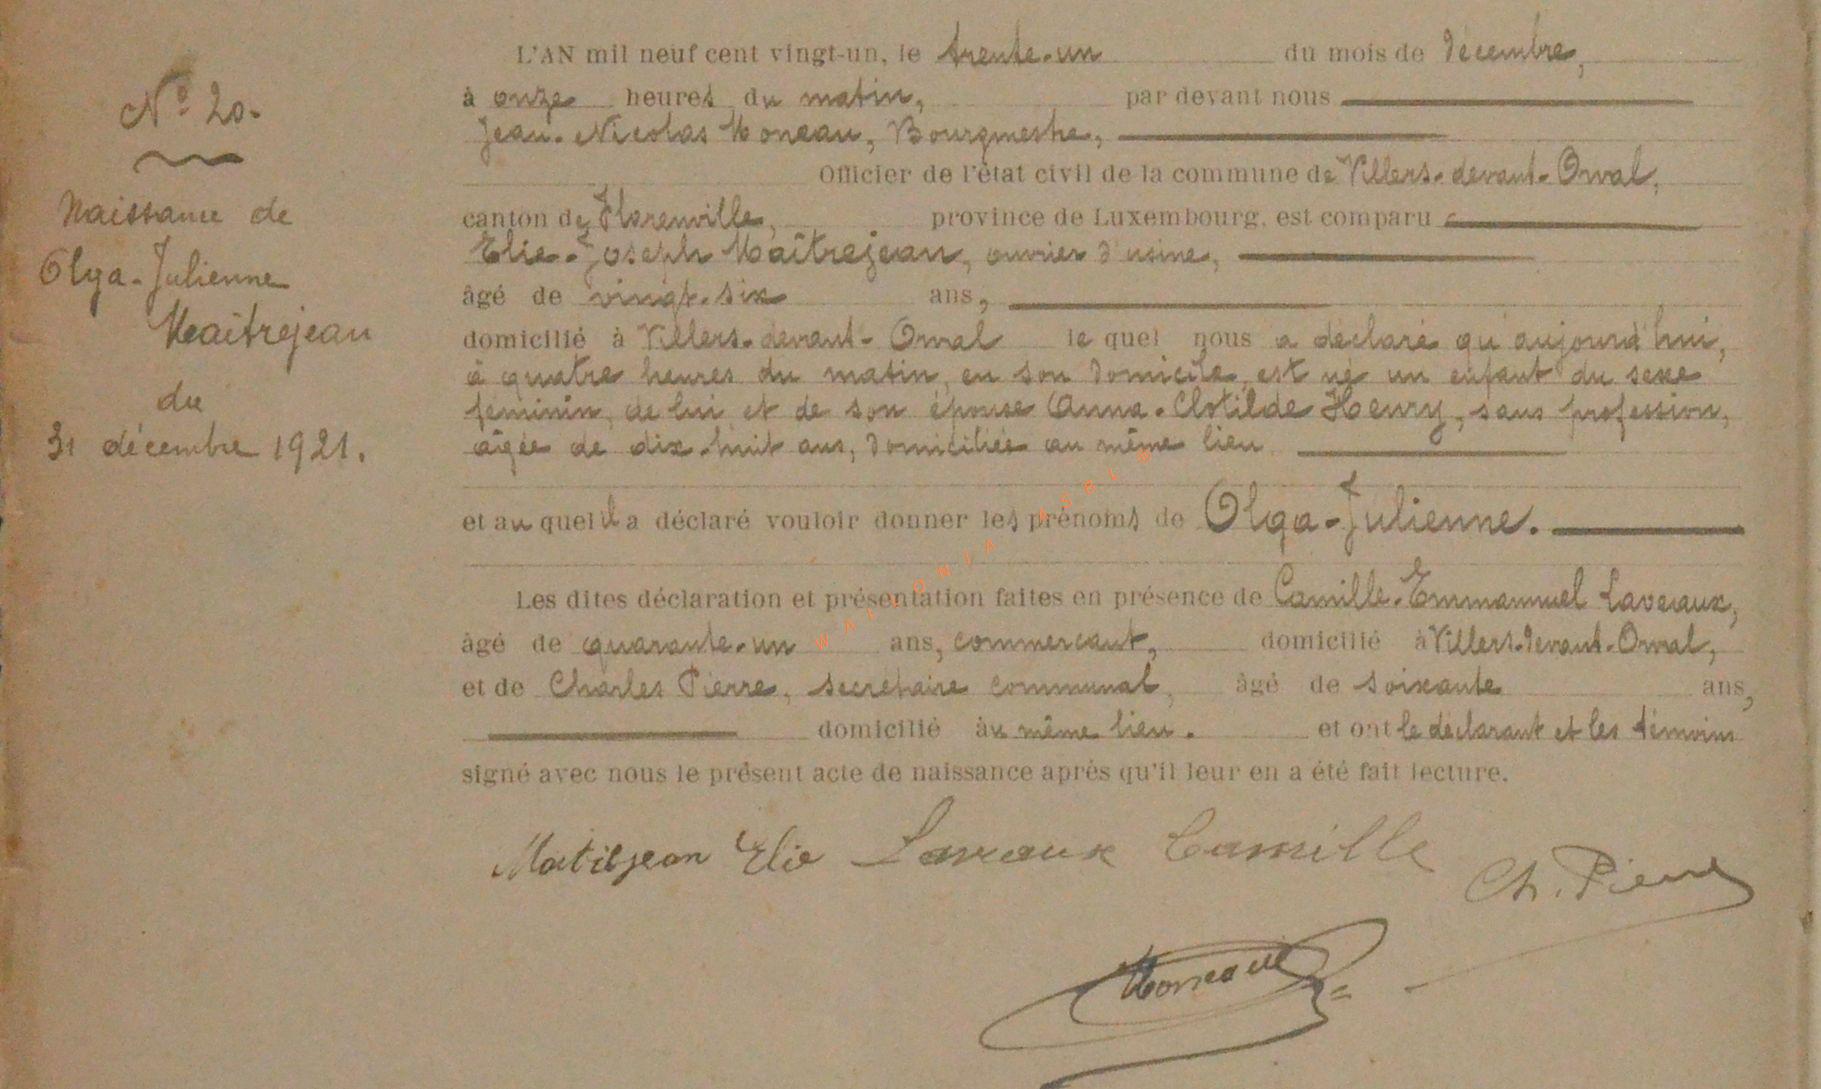 N° 20.
Naissance de
Olga-Julienne
Maîtrejean
du
31 décembre 1921.
L'AN mil neuf cent vingt-un, le trente-un du mois de décembre,
à onze heures du matin, par devant nous
Jean-Nicolas Moneau, Bourgmestre,
Officier de l'état civil de la commune de Villers-devant-Orval,
canton de Florenville, province de Luxembourg, est comparu
Elie-Joseph Maîtrejean, ouvrier d'usine,
âgé de vingt-six ans,
domicilié à Villers-devant-Orval le quel nous a déclaré qu'aujourd'hui,
à quatre heures du matin, en son domicile, est né un enfant du sexe
féminin, de lui et de son épouse Anna-Clotilde Henry, sans profession,
âgée de dix-huit ans, domiciliée au même lieu
et au quel il a déclaré vouloir donner les prénoms de Olga-Julienne.
Les dites déclaration et présentation faites en présence de Camille-Emmanuel Lavaux,
âgé de quarante-un ans, commercant, domicilié à Villers-devant-Orval,
et de Charles Pierre, secrétaire communal, âgé de soixante ans,
domicilié au même lieu. et ont le déclarant et les témoins
signé avec nous le présent acte de naissance après qu'il leur en a été fait lecture.
Elie Lavaux Camille
Ch. Pierre
Moneau
WALLONIA ASBL